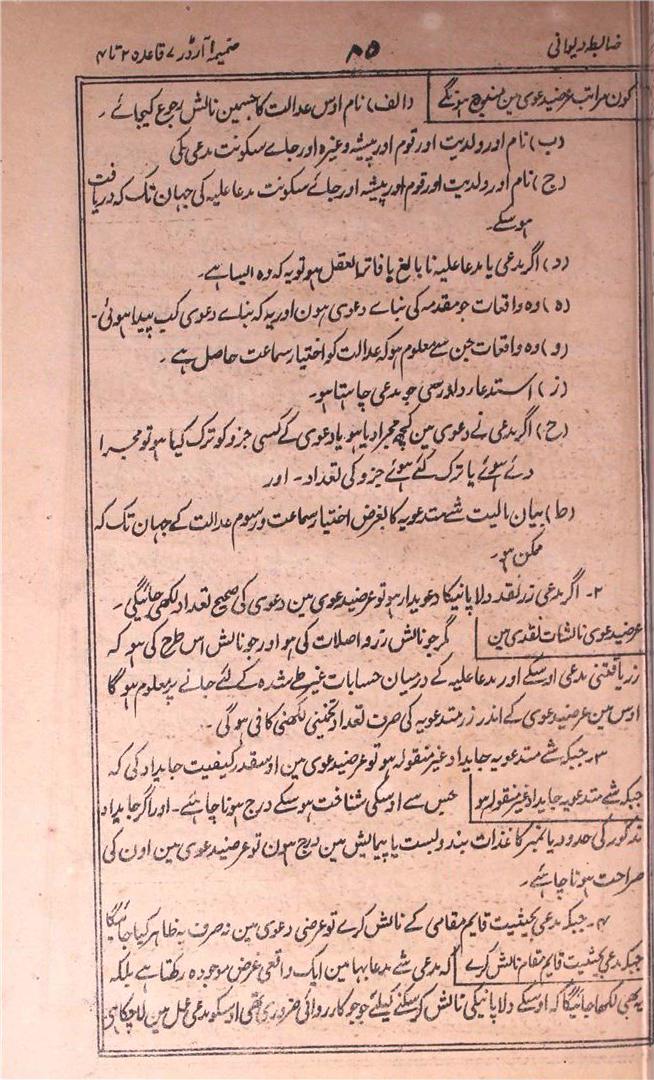 ضابطہ دیوانی
۸۵
ضمیمہ ۱ آرڈر ۷ قاعدہ ۲ تا ۴
کون مراتب عرضیدعوی مین مندرج ہونگے
(الف) نام اوس عدالت کا جسمین نالش رجوع کیجائے ۔
(ب) نام اور ولدیت اور قوم اور پیشہ وغیرہ اور جاے سکونت مدعی کی
(ج) نام اور ولدیت اور قوم اور پیشہ اور جائے سکونت مدعا علیہ کی جہان تک کہ دریافت
ہوسکے۔
(د) اگر مدعی یا مدعا علیہ نابالغ یا فاتر العقل ہو تو یہ کہ وہ ایسا ہے۔
(ہ) وہ واقعات جو مقدمہ کی بناے دعوی ہون اور یہ کہ بناے دعوی کب پیدا ہوئی۔
(و) وہ واقعات جن سے معلوم ہو کہ عدالت کو اختیار سماعت حاصل ہے ۔
(ز) استدعار دادرسی جو مدعی چاہتا ہو۔
(ح) اگر مدعی نے دعوی مین کچھ مجرا دیا ہو یا دعوی کے کسی جزو کو ترک کیا ہو تو مجرا
دئے ہوئے یا ترک کئے ہوئے جزو کی تعداد۔ اور
(ط) بیان مالیت شے متدعویہ کا بغرض اختیار سماعت و رسوم عدالت کے جہان تک کہ
ممکن ہو۔
۲۔ اگر مدعی زر نقد دلا پانیکا دعویدار ہو تو عرضیدعوی مین دعوی کی صحیح تعداد لکھی جائیگی ۔
عرضیدعوی نالشات نقدی مین
مگر جو نالش زر واصلات کی ہو اور جو نالش اس طرح کی ہو کہ
زر یافتنی مدعی اوسکے اور مدعا علیہ کے درمیان حسابات غیر طے شدہ کے لئے جانے پر معلوم ہوگا
اوس مین عرضیدعوی کے اندر زر متدعویہ کی صرف تعداد تخمینی لکھنی کافی ہوگی ۔
۳۔ جبکہ شے متدعویہ جایداد غیر منقولہ ہو تو عرضیدعوی مین اوسقدر کیفیت جایداد کی کہ
جبکہ شے متدعویہ جایداد غیر منقولہ ہو
جس سے اوسکی شناخت ہوسکے درج ہونا چاہئے۔ اور اگر جایداد
مذکور کی حدود یا نمبر کاغذات بندوبست یا پیمایش مین درج ہون تو عرضیدعوی مین اون کی
صراحت ہونا چاہئے ۔
۴۔ جبکہ مدعی بحیثیت قایم مقامی کے نالش کرے تو عرضی دعوی مین نہ صرف یہ ظاہر کیا جائیگا
جبکہ مدعی بحیثیت قایم مقام نالش کرے
کہ مدعی شے مدعا بہا مین ایک واقعی غرض موجودہ رکھتا ہے بلکہ
یہ بھی لکھا جائیگا کہ اوسکے دلا پانیکی نالش کر سکنے کیلئے جو جو کارروائی ضروری تھی اوسکو مدعی عمل مین لاچکا ہی